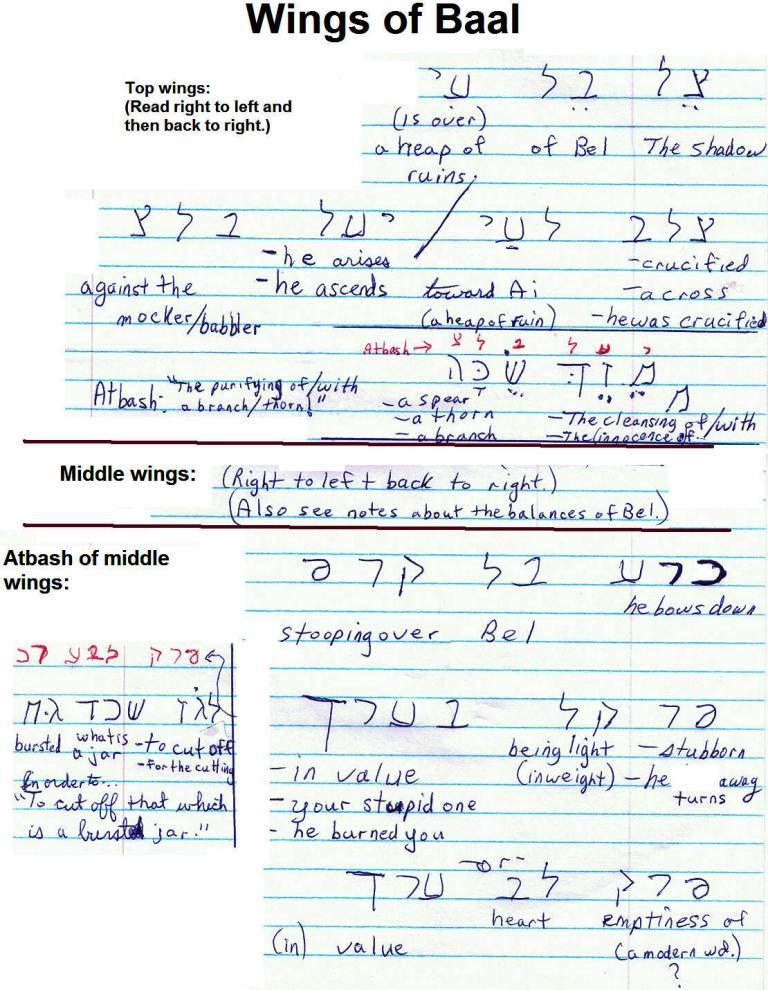 Wings of Baal
Top wings:
(Read right to left and
then back to right.)
צל בל עי
(is over)
a heap of of Bel The shadow
ruins;
צלב לעי יעל בלצ
-he arises -crucified
against the -he ascends toward Ai -across
mocker/babbler (a heap of ruin) -he was crucified
Atbash → צ ל ב ל ע י
Atbash: "The purifying of/with
a branch/thorn!"
-a spear
-a thorn -The cleansing of/with
-a branch -The innocence of..
Middle wings: (Right to left back to right.)
(Also see notes about the balances of Bel.)
Atbash of middle
wings:
כרע בל קרפ
he bows down
stooping over Bel
פרק לבע רכ
לגז שכד
bursted what is a jar -to cut off
-for the cutting
In order to...
"To cut off that which
is a bursted jar."
פר קל בערך
being light -stubborn
-in value (in weight) -he turns away
-your stupid one
-he burned you
-or-
פרק לב ערך
heart emptiness of
(in) value (a modern wd.)
?